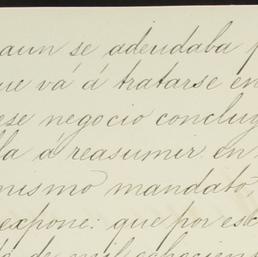 aun se adeudaba
que vá á tratarse en
ese negocio concluy
lla á reasumir en
mismo mandato,
expone: que por es
de mil ochocien